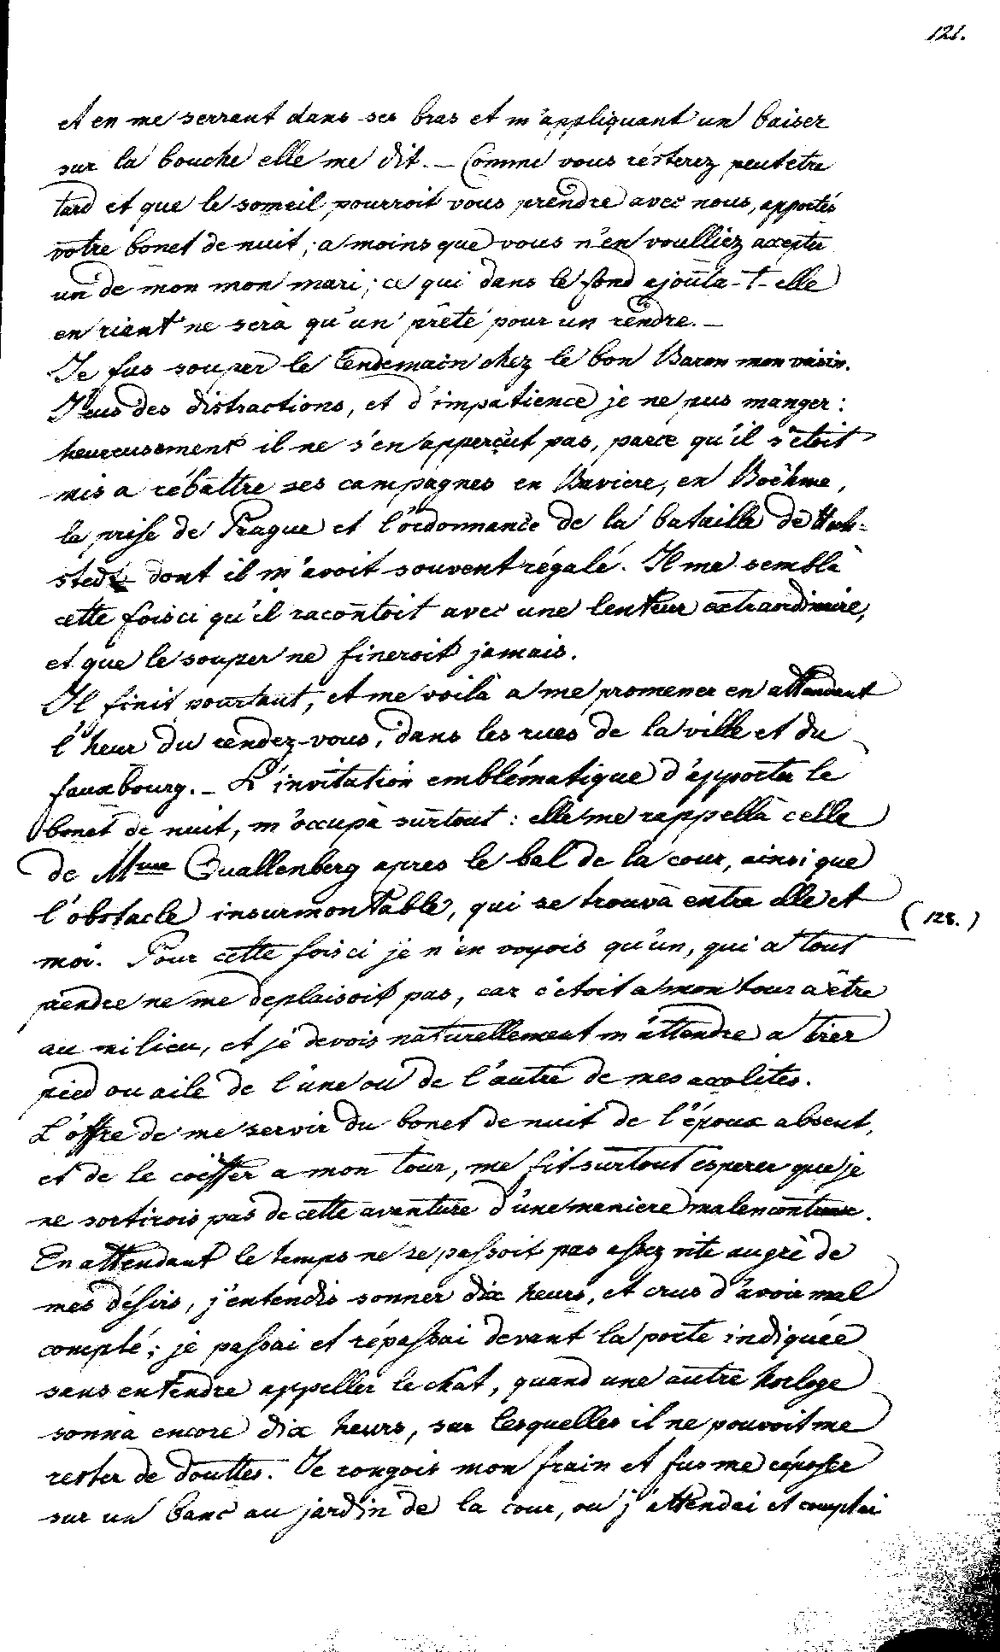 121.
et en me serrant dans ses bras et m'appliquant un baiser
sur la bouche elle me dit. _ Comme vous resterez peutetre
tard et que le someil pourroit vous prendre avec nous, apportés
votre bonet de nuit; a moins que vous n'en voulliez acepter
un de mon mon mari; ce qui dans le fond ajoûta-t-elle
en riant ne sera qu'un prêté pour un rendre. _
Je fus souper le lendemain chez le bon Baron mon voisin.
J'eus des distractions, et d'impatience je ne pus manger:
heureusement il ne s'en apperçut pas, parce qu'il s'étoit
mis a rébattre ses campagnes en Baviere, en Boëhme,
la prise de Prague et l'ordonnance de la bataille de Hoh=
stedt dont il m'avoit souvent régalé. Il me sembla
cette fois ci qu'il racontoit avec une lenteur extraordinaire,
et que le souper ne fineroit jamais.
Il finit pourtant, et me voilà a me promener en attendant
l'heur du rendez-vous, dans les rues de la ville et du
fauxbourg. _ L'invitation emblématique d'apporter le
bonet de nuit, m'occupa surtout: elle me rappella celle
de Mme Quallenberg apres le bal de la cour, ainsi que
l'obstacle insurmontable, qui se trouva entre elle et
(128.)
moi. Pour cette fois ci je n'en voyois qu'un, qui a tout
prendre ne me deplaisoit pas, car c'étoit a mon tour a être
au milieu, et je devois naturellement m'attendre a tirer
pied ou aile de l'une ou de l'autre de mes acolites.
L'offre de me servir du bonet de nuit de l'époux absent,
et de le coëffer a mon tour, me fit surtout esperer que je
ne sortirois pas de cette aventure d'une maniere malencontreuse.
En attendant le temps ne se passoit pas assez vite au gré de
mes désirs, j'entendis sonner dix heurs, et crus d'avoir mal
compté; je passai et répassai devant la porte indiquée
sans entendre appeller le chat, quand une autre horloge
sonna encore dix heurs, sur lesquelles il ne pouvoit me
rester de douttes. Je rongois mon frain et fus me réposer
sur un banc au jardin de la cour, ou j'attendai et comptai